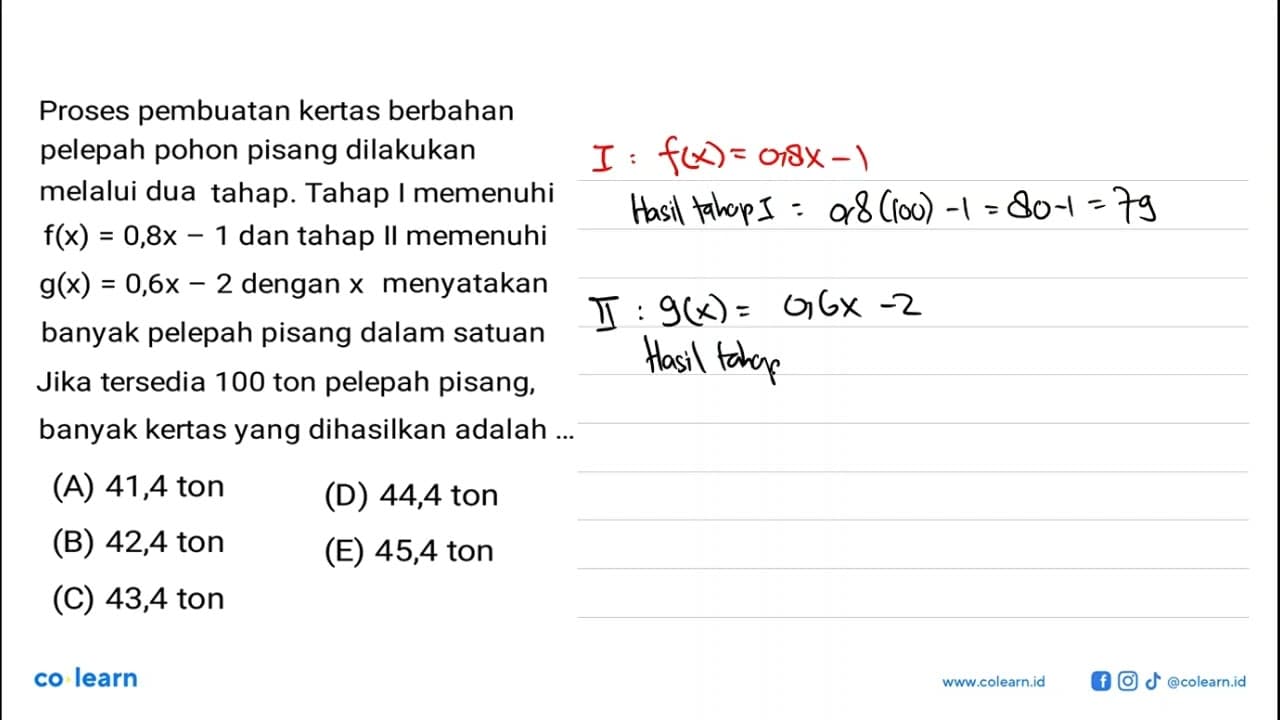 Proses pembuatan kertas berbahan
pelepah pohon pisang dilakukan
melalui dua tahap. Tahap I memenuhi
f(x) = 0,8x – 1 dan tahap II memenuhi
g(x) = 0,6x – 2 dengan x menyatakan
banyak pelepah pisang dalam satuan
Jika tersedia 100 ton pelepah pisang,
banyak kertas yang dihasilkan adalah ...
(A) 41,4 ton
(B) 42,4 ton
(C) 43,4 ton
(D) 44,4 ton
(E) 45,4 ton
I : f(x) = 0,8x – 1
Hasil tahap I = 0,8 (100) – 1 = 80 – 1 = 79
II : g(x) = 0,6x – 2
Hasil tahap
co learn
www.colearn.id
@colearn.id